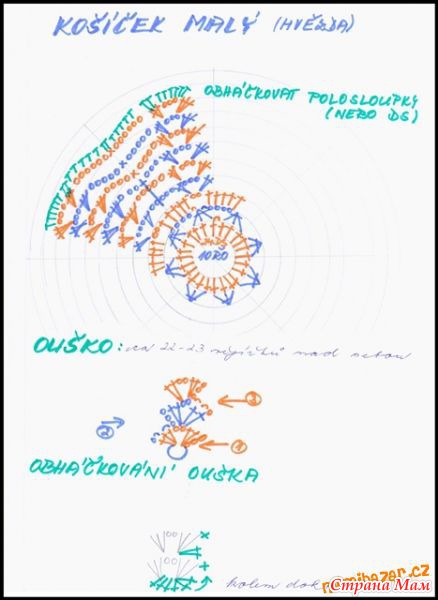 KOŠÍČEK MALÝ (HVĚZDA)
OBHÁČKOVAT POLOSLOUPKY
(NEBO DS)
10 ŘO
OUŠKO: ca 22-23 nad sebou
③
②
①
OBHÁČKOVÁNÍ OUŠKA
kolem
mimibazar.cz
Страна Мам